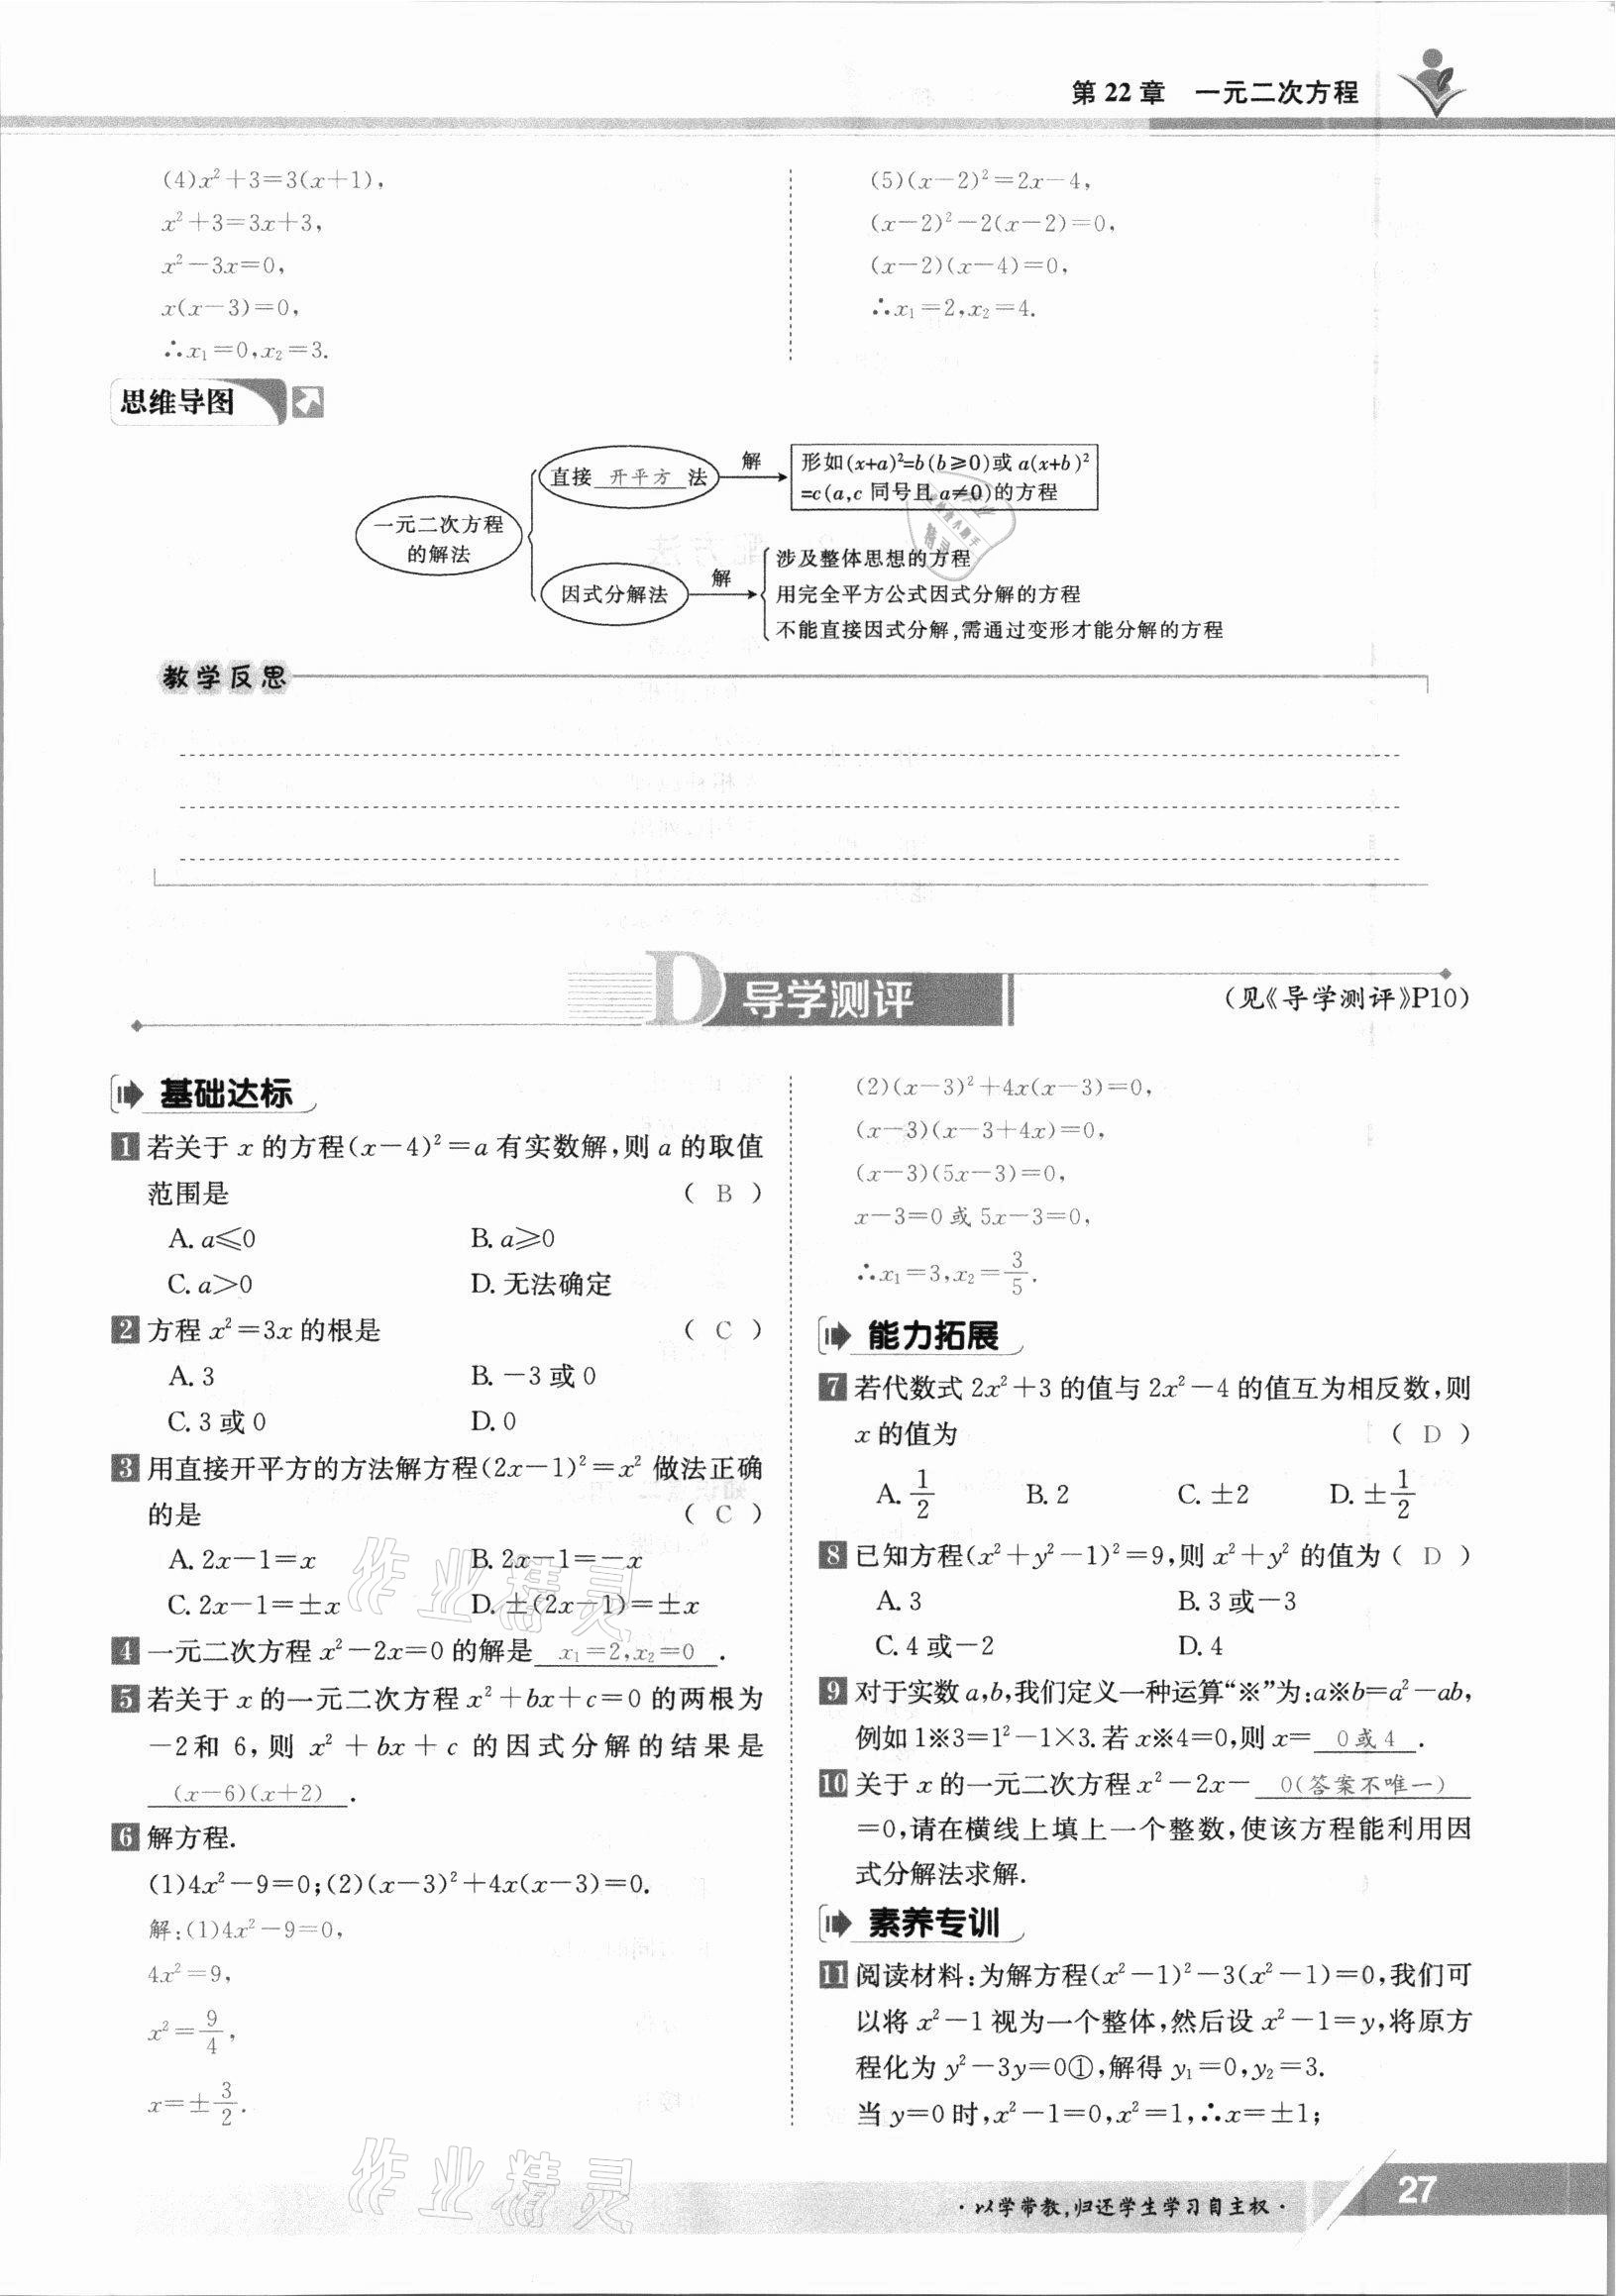 第22章 一元二次方程
(4)x²+3=3(x+1),
x²+3=3x+3,
x²-3x=0,
x(x-3)=0,
∴x₁=0,x₂=3.
(5)(x-2)²=2x-4,
(x-2)²-2(x-2)=0,
(x-2)(x-4)=0,
∴x₁=2,x₂=4.
思维导图
一元二次方程
的解法
直接 开平方 法
解
形如(x+a)²=b(b≥0)或a(x+b)²
=c(a,c同号且a≠0)的方程
因式分解法
解
涉及整体思想的方程
用完全平方公式因式分解的方程
不能直接因式分解,需通过变形才能分解的方程
教学反思
D 导学测评
(见《导学测评》P10)
基础达标
1 若关于x的方程(x-4)²=a有实数解,则a的取值
范围是 ( B )
A. a≤0 B. a≥0
C. a>0 D. 无法确定
2 方程x²=3x的根是 ( C )
A. 3 B. -3或0
C. 3或0 D. 0
3 用直接开平方的方法解方程(2x-1)²=x²做法正确
的是 ( C )
A. 2x-1=x B. 2x-1=-x
C. 2x-1=±x D. ±(2x-1)=±x
4 一元二次方程x²-2x=0的解是 x₁=2,x₂=0 .
5 若关于x的一元二次方程x²+bx+c=0的两根为
-2和6,则x²+bx+c的因式分解的结果是
(x-6)(x+2) .
6 解方程.
(1)4x²-9=0;(2)(x-3)²+4x(x-3)=0.
解:(1)4x²-9=0,
4x²=9,
x²=9/4,
x=±3/2.
(2)(x-3)²+4x(x-3)=0,
(x-3)(x-3+4x)=0,
(x-3)(5x-3)=0,
x-3=0或5x-3=0,
∴x₁=3,x₂=3/5.
能力拓展
7 若代数式2x²+3的值与2x²-4的值互为相反数,则
x的值为 ( D )
A. 1/2 B. 2 C. ±2 D. ±1/2
8 已知方程(x²+y²-1)²=9,则x²+y²的值为( D )
A. 3 B. 3或-3
C. 4或-2 D. 4
9 对于实数a,b,我们定义一种运算“※”为:a※b=a²-ab,
例如1※3=1²-1×3.若x※4=0,则x= 0或4 .
10 关于x的一元二次方程x²-2x- 0(答案不唯一)
=0,请在横线上填上一个整数,使该方程能利用因
式分解法求解.
素养专训
11 阅读材料:为解方程(x²-1)²-3(x²-1)=0,我们可
以将x²-1视为一个整体,然后设x²-1=y,将原方
程化为y²-3y=0①,解得y₁=0,y₂=3.
当y=0时,x²-1=0,x²=1,∴x=±1;
作业精灵
作业精灵
·以学带教,归还学生学习自主权·
27